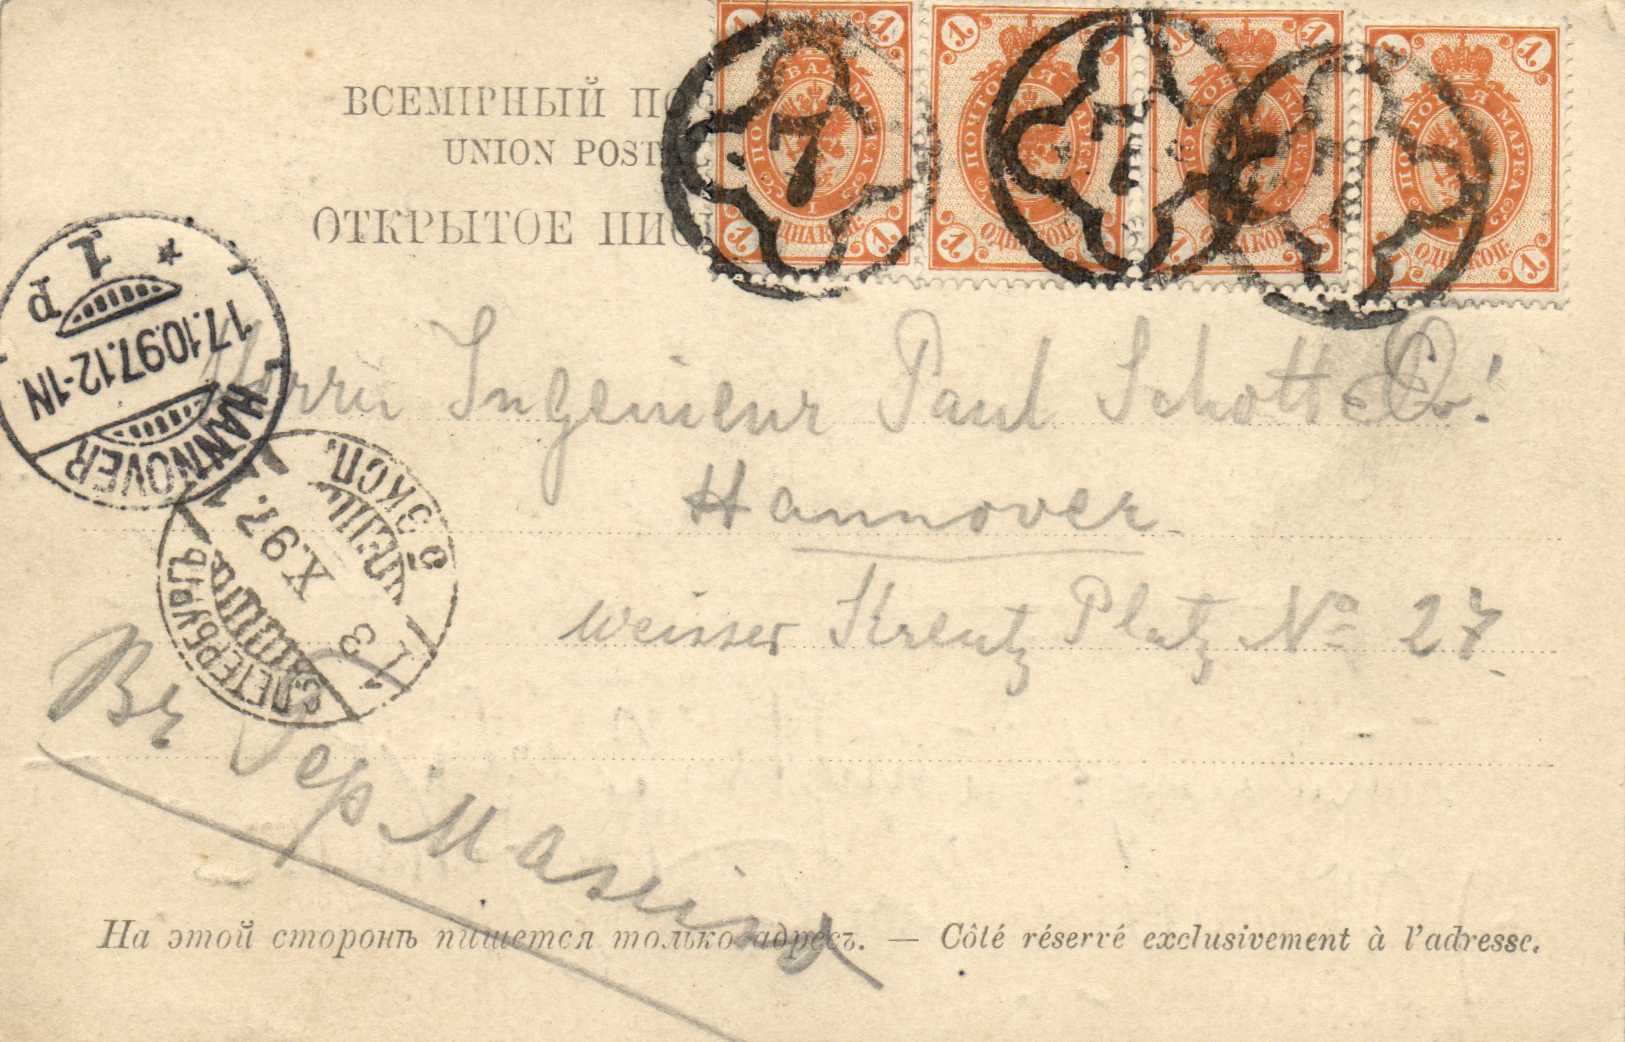 ВСЕМІРНЫЙ ПОС
UNION POSTAL
ОТКРЫТОЕ ПИС
1 1
ПОЧТОВАЯ МАРКА
1
1 ОДНА КОП. 1
7
1 1
ПОЧТОВАЯ МАРКА
1
1 ОДНА КОП. 1
7
1 1
ПОЧТОВАЯ МАРКА
1 ОДНА КОП. 1
1 1
ПОЧТОВАЯ МАРКА
1
1 ОДНА КОП. 1
7
HANNOVER
17.10.97.12-1N
* 1 P
С.ПЕТЕРБУРГЪ
3 X.97. 1
5 ЭКСП.
Herrn Ingenieur Paul Schott & Co!
Hannover
Weisser Kreutz Platz No 27
Въ Германію
На этой сторонѣ пишется только адресъ. — Côté réservé exclusivement à l'adresse.